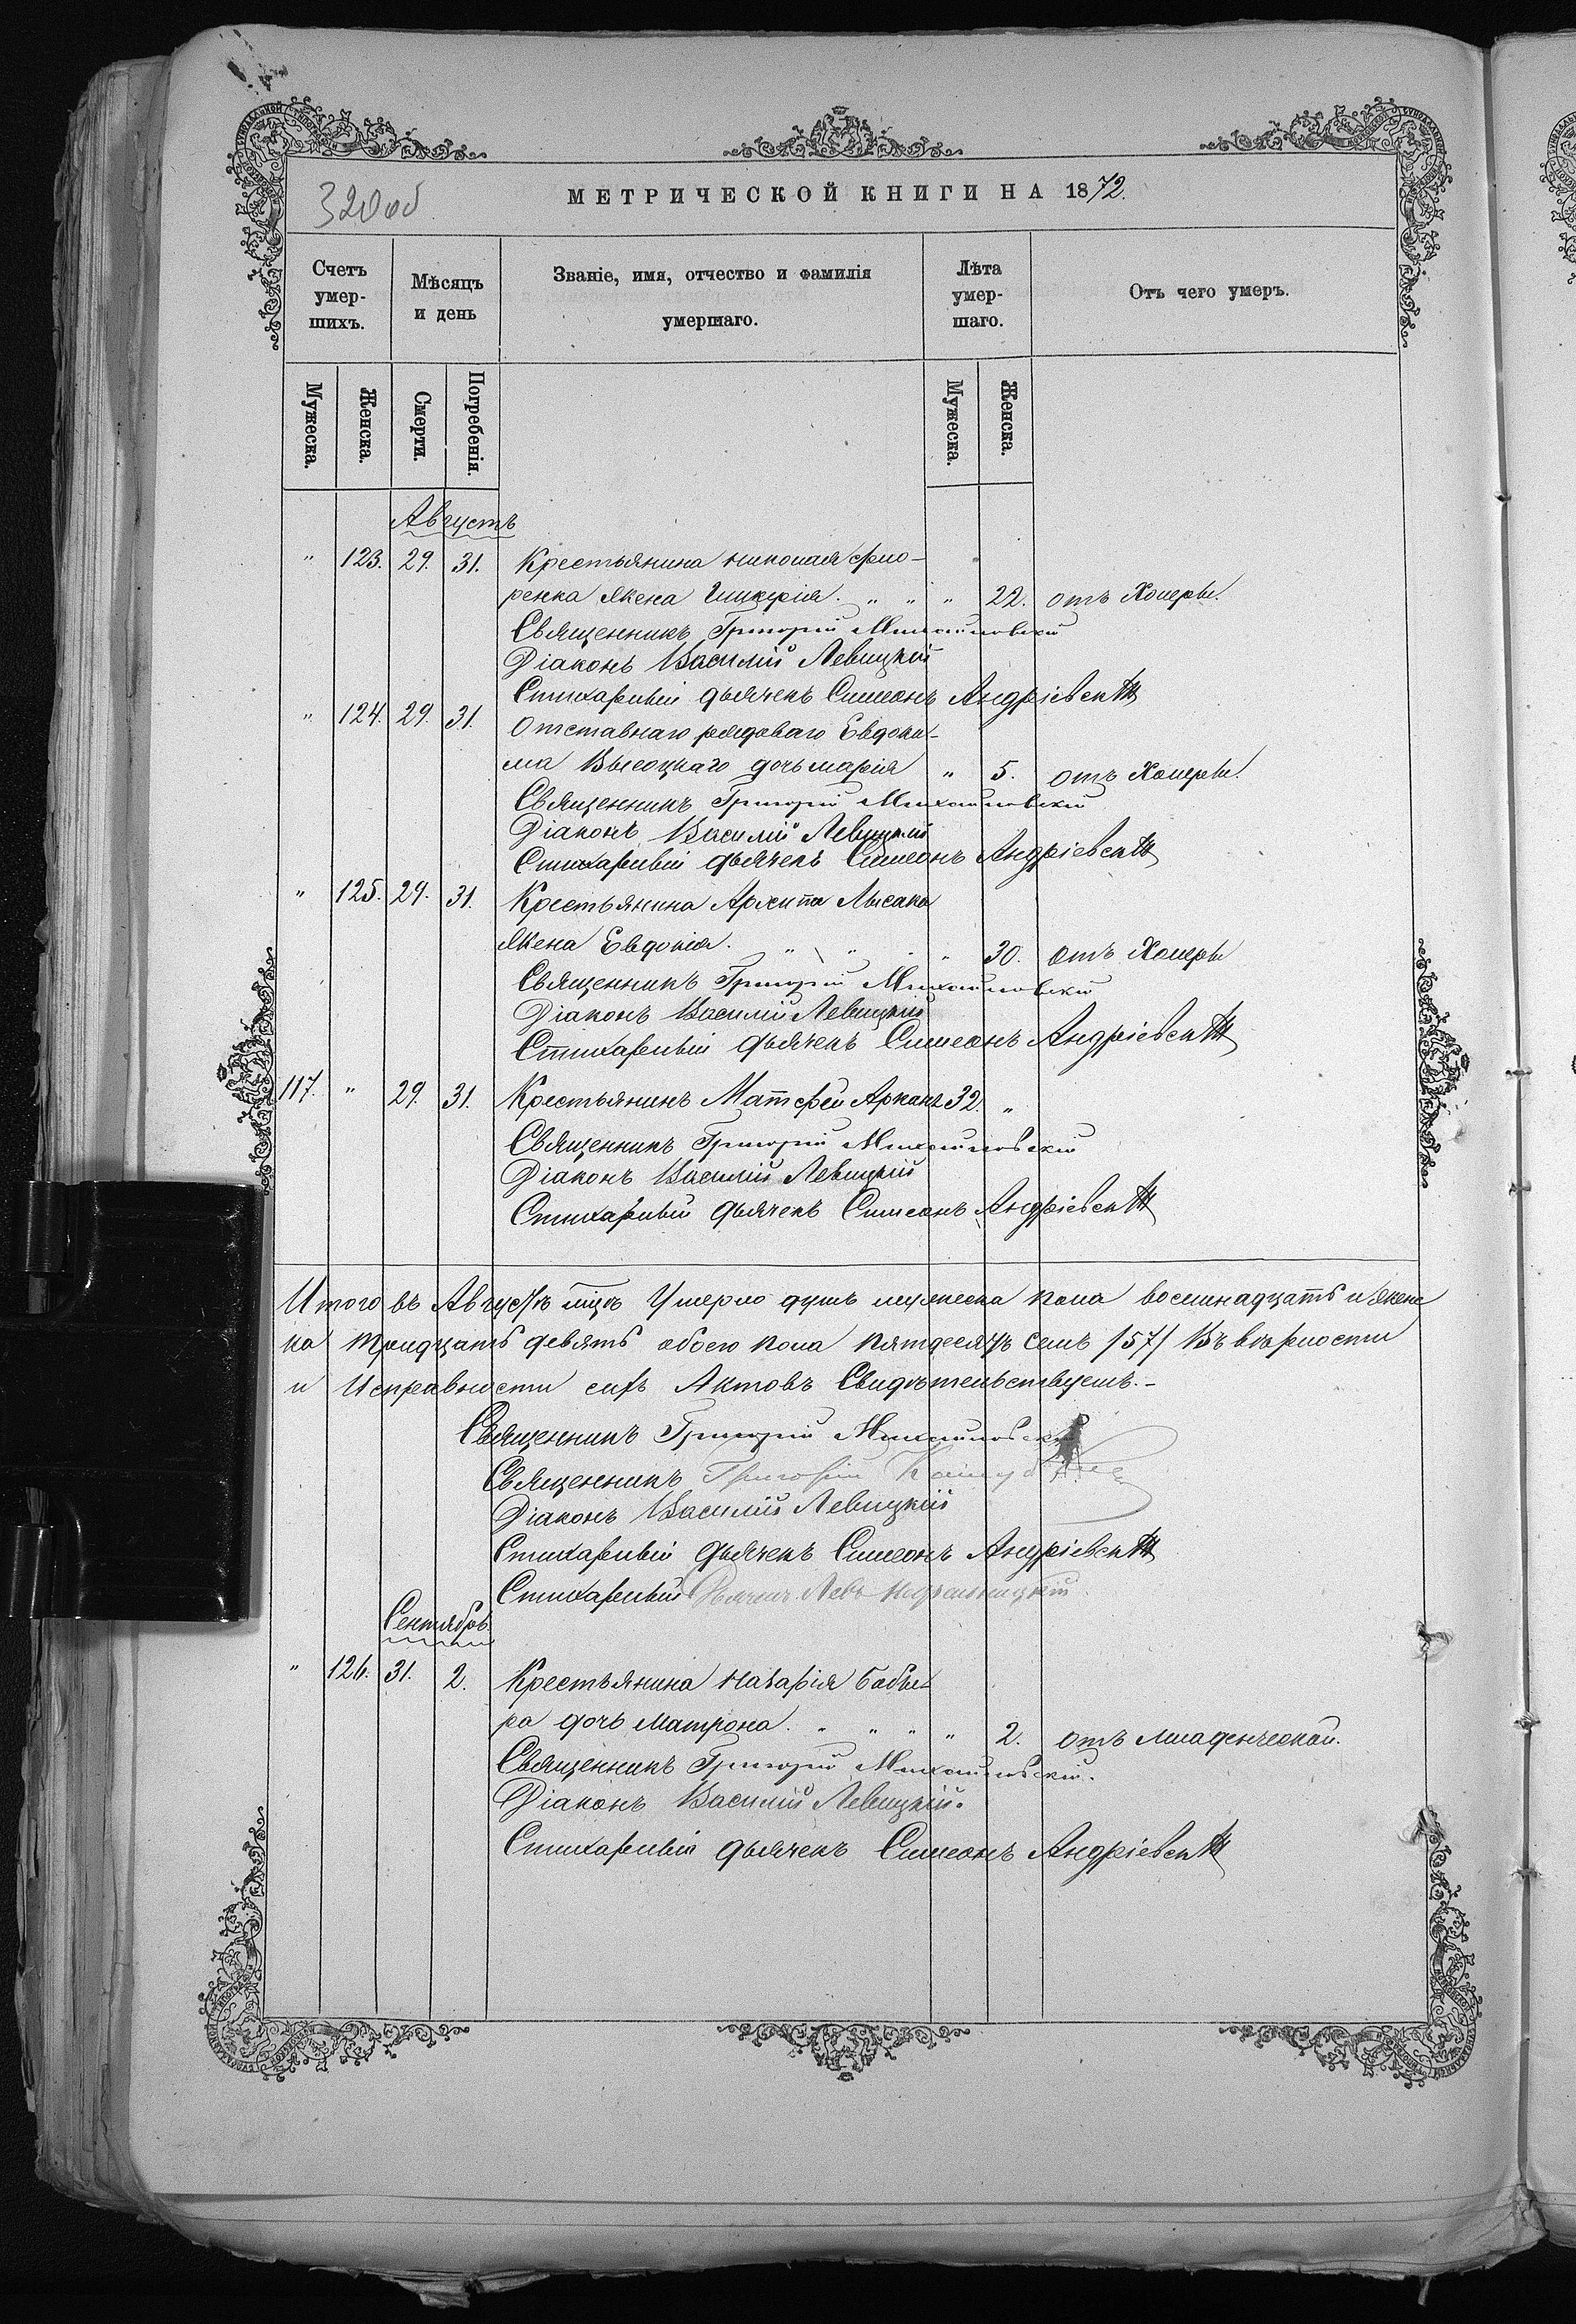 320об
МЕТРИЧЕСКОЙ КНИГИ НА 1872.
Счетъ умер-шихъ.
Мѣсяцъ и день
Званіе, имя, отчество и фамилія умершаго.
Лѣта умер-шаго.
Отъ чего умеръ.
Мужеска.
Женска.
Смерти.
Погребенія.
Мужеска.
Женска.
Августъ
" 123. 29. 31. Крестьянина Николая
ренка жена " " " 22. отъ Холеры.
Священникъ Григорій Михайловскій
Діаконъ Василій Левицкій
Стихарный дьячекъ Симеонъ Андріевскій
" 124. 29. 31. Отставнаго рядоваго Евдоки-
ма Высоцкаго дочь Марія " 5. отъ Холеры.
Священникъ Григорій Михайловскій
Діаконъ Василій Левицкій
Стихарный дьячекъ Симеонъ Андріевскій
" 125. 29. 31. Крестьянина Архипа Лысака
жена Евдокія. " " " 30. отъ Холеры
Священникъ Григорій Михайловскій
Діаконъ Василій Левицкій
Стихарный дьячекъ Симеонъ Андріевскій
117. " 29. 31. Крестьянинъ Матфей Арканъ 32. "
Священникъ Григорій Михайловскій
Діаконъ Василій Левицкій
Стихарный дьячекъ Симеонъ Андріевскій
Итого въ Августѣ мцѣ Умерло душъ мужеска пола восминадцать и женс
ка тридцать девять обоего пола пятдесятъ семь /57/ Въ вѣрности
и Исправности сихъ Актовъ Свидѣтельствуемъ.-
Священникъ Григорій Михайловскій
Священникъ Григорій
Діаконъ Василій Левицкій
Стихарный дьячекъ Симеонъ Андріевскій
Стихарный Дьячекъ Левъ
Сентябрь.
" 126. 31. 2. Крестьянина Назарія Бабы-
ра дочь Матрона. " " " " 2. отъ младенческой.
Священникъ Григорій Михайловскій.
Діаконъ Василій Левицкій.
Стихарный дьячекъ Симеонъ Андріевскій